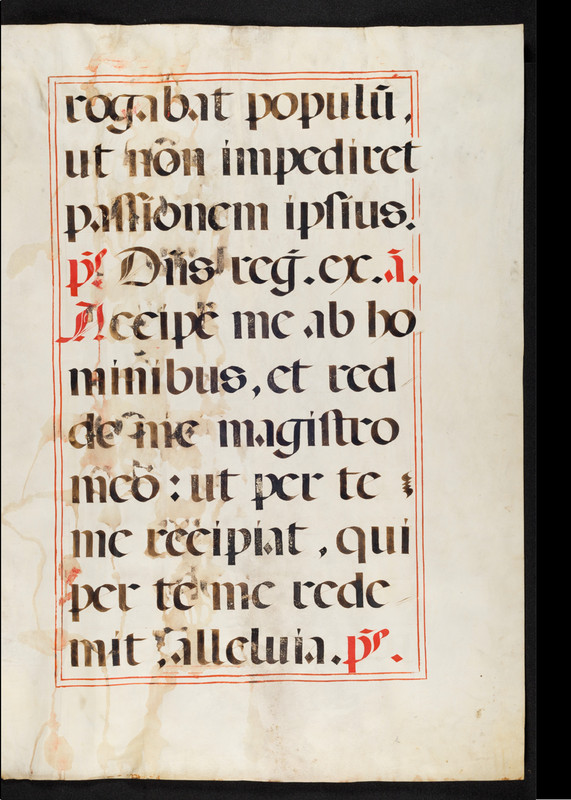 rogabat populũ,
ut non impediret
paſſionem ipſius.
pſ. Dñs reg̃. ex. ã.
Accipe me ab ho
minibus, et red
de me magiſtro
meo : ut per te
me recipiat, qui
per te me rede
mit, alleluia. pſ.